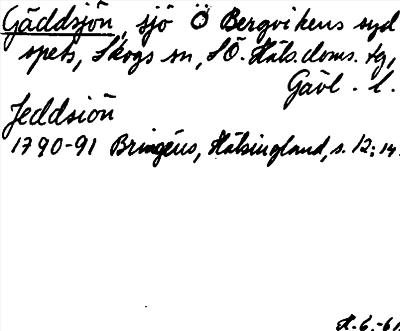 Gäddsjön, sjö Ö Bergvikens syd
spets, Skogs sn, SÖ. Häls. doms. tg,
Gävl. l.
Jeddsiön
1790-91 Bringéus, Hälsingland, s. 12:14.
H. 6.-61